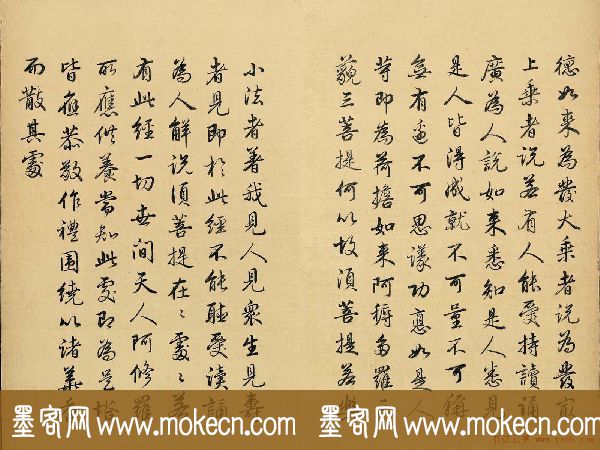 德如來為發大乘者說為發最
上乘者說若有人能受持讀誦
廣為人說如來悉知是人悉見
是人皆得成就不可量不可稱
無有邊不可思議功德如是人
等即為荷擔如來阿耨多羅三
藐三菩提何以故須菩提若樂
小法者著我見人見眾生見壽
者見即於此經不能聽受讀誦
為人解說須菩提在〻處〻若
有此經一切世間天人阿修羅
所應供養當知此處即為是塔
皆應恭敬作禮圍繞以諸華香
而散其處
墨客网 www.mokecn.com 墨客网 www.mokecn.com